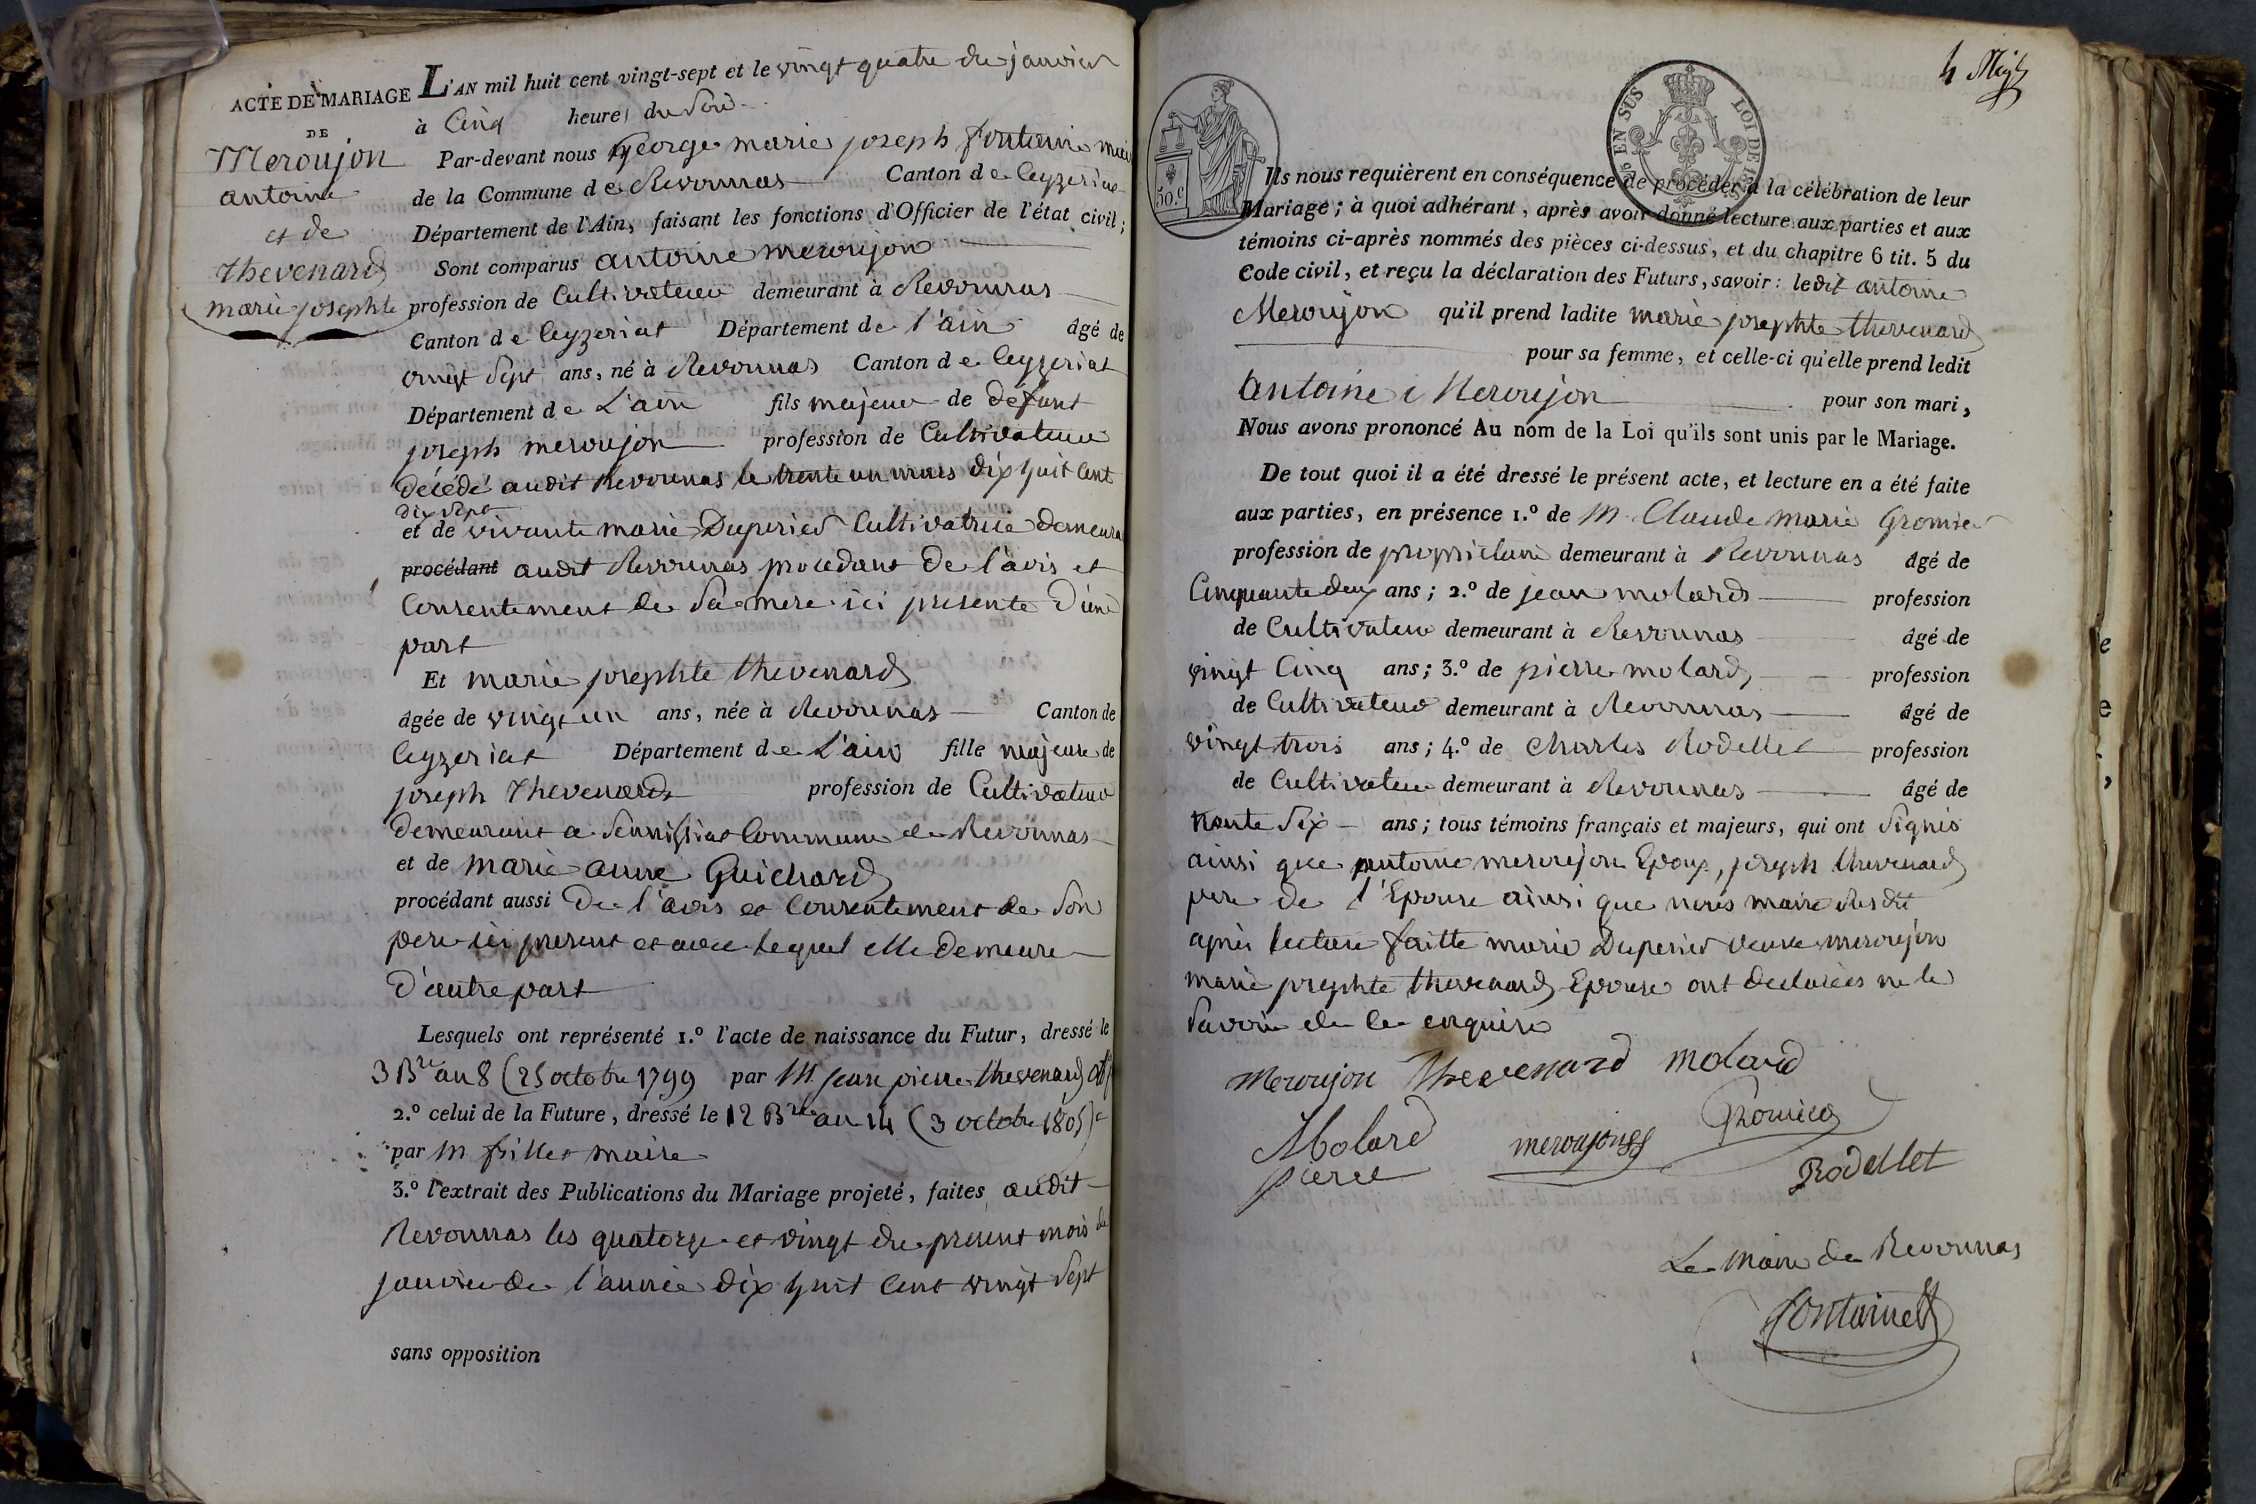 ACTE DE MARIAGE
DE
Meroujon
antoine
et de
thevenard
marie josephte
L'AN mil huit cent vingt-sept et le vingt quatre du janvier
à Cinq heures du Soir
Par-devant nous George marie joseph fontaine maire
de la Commune de Revonnas Canton de Ceyzeriat
Département de l'Ain, faisant les fonctions d'Officier de l'état civil;
Sont comparus antoine meroujon
profession de Cultivateur demeurant à Revonnas
Canton de Ceyzeriat Département de l'ain âgé de
vingt Sept ans, né à Revonnas Canton de Ceyzeriat
Département de L'ain fils majeur de défunt
joseph meroujon profession de Cultivateur
décédé audit Revonnas le trente un mars dix huit Cent
dix Sept
et de vivante marie Duperier Cultivatrice demeura
procédant audit Revonnas procedant de l'avis et
Consentement de Sa mere ici presente D'une
part
Et marie josephte thevenard
âgée de vingt un ans, née à Revonnas Canton de
Ceyzeriat Département de L'ain fille majeure de
joseph thevenard profession de Cultivateur
demeurant a Sennissiat Commune de Revonnas
et de marie anne Guichard
procédant aussi De l'avis et Consentement de Son
pere ici present et avec lequel elle demeure
D'autre part
Lesquels ont représenté 1.º l'acte de naissance du Futur, dressé le
3 Bre an 8 (25 octobre 1799 par M jean pierre thevenard
2.º celui de la Future, dressé le 12 Bre an 14 (3 octobre 1805)
par m fillet maire
3.º l'extrait des Publications du Mariage projeté, faites audit
Revonnas les quatorze et vingt du present mois de
janvier de l'année dix huit Cent vingt Sept
sans opposition
50.c
EN SUS
LOI DE
Ils nous requièrent en conséquence de procéder à la célébration de leur
Mariage; à quoi adhérant, après avoir donné lecture aux parties et aux
témoins ci-après nommés des pièces ci-dessus, et du chapitre 6 tit. 5 du
Code civil, et reçu la déclaration des Futurs, savoir: ledit antoine
Meroujon qu'il prend ladite marie josephte thevenard
pour sa femme, et celle-ci qu'elle prend ledit
antoine Meroujon pour son mari,
Nous avons prononcé Au nom de la Loi qu'ils sont unis par le Mariage.
De tout quoi il a été dressé le présent acte, et lecture en a été faite
aux parties, en présence 1.º de M. Claude marie Gromier
profession de propriétaire demeurant à Revonnas âgé de
Cinquante deux ans; 2.º de jean molard profession
de Cultivateur demeurant à Revonnas âgé de
vingt Cinq ans; 3.º de pierre molard profession
de Cultivateur demeurant à Revonnas âgé de
vingt trois ans; 4.º de Charles Rodellet profession
de Cultivateur demeurant à Revonnas âgé de
trente Six ans; tous témoins français et majeurs, qui ont Signés
ainsi que antoine meroujon Epoux, joseph thevenard
pere de l'Epouse ainsi que nous maire Susdit
après lecture faitte marie Duperier veuve meroujon
marie josephte thevenard Epouse ont declarées ne le
Savoir de ce enquise
Meroujon Thevenard Molard
Gromier
Molard
pierre
meroujon
Rodellet
Le maire de Revonnas
fontaine